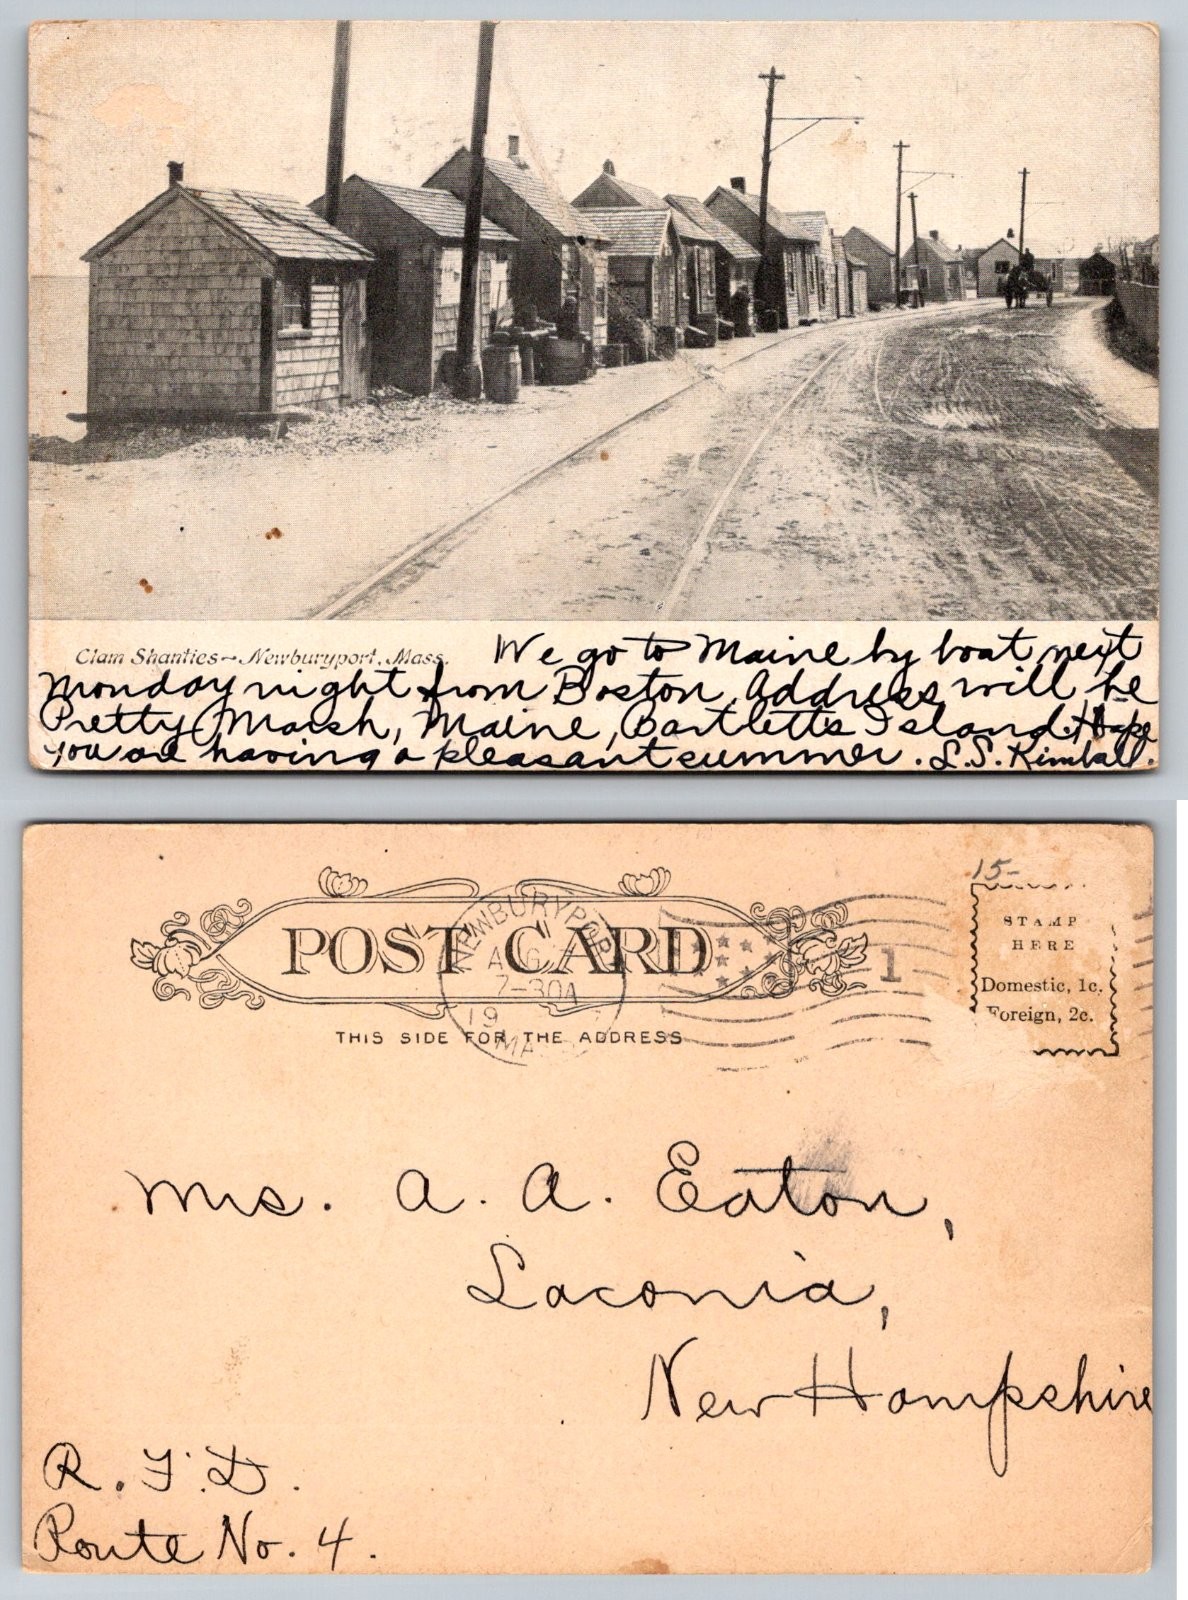 Clam Shanties~Newburyport, Mass.
We go to Maine by boat next
Monday night from Boston. Address will be
Pretty Marsh, Maine, Bartlett's Island. Hope
you are having a pleasant summer. L.S. Kimball.
15-
POST CARD
THIS SIDE FOR THE ADDRESS
NEWBURYPORT
AUG
7-30A
19
MA
1
STAMP
HERE
Domestic, 1c.
Foreign, 2c.
Mrs. A. A. Eaton,
Laconia,
New Hampshire
R.F.D.
Route No. 4.